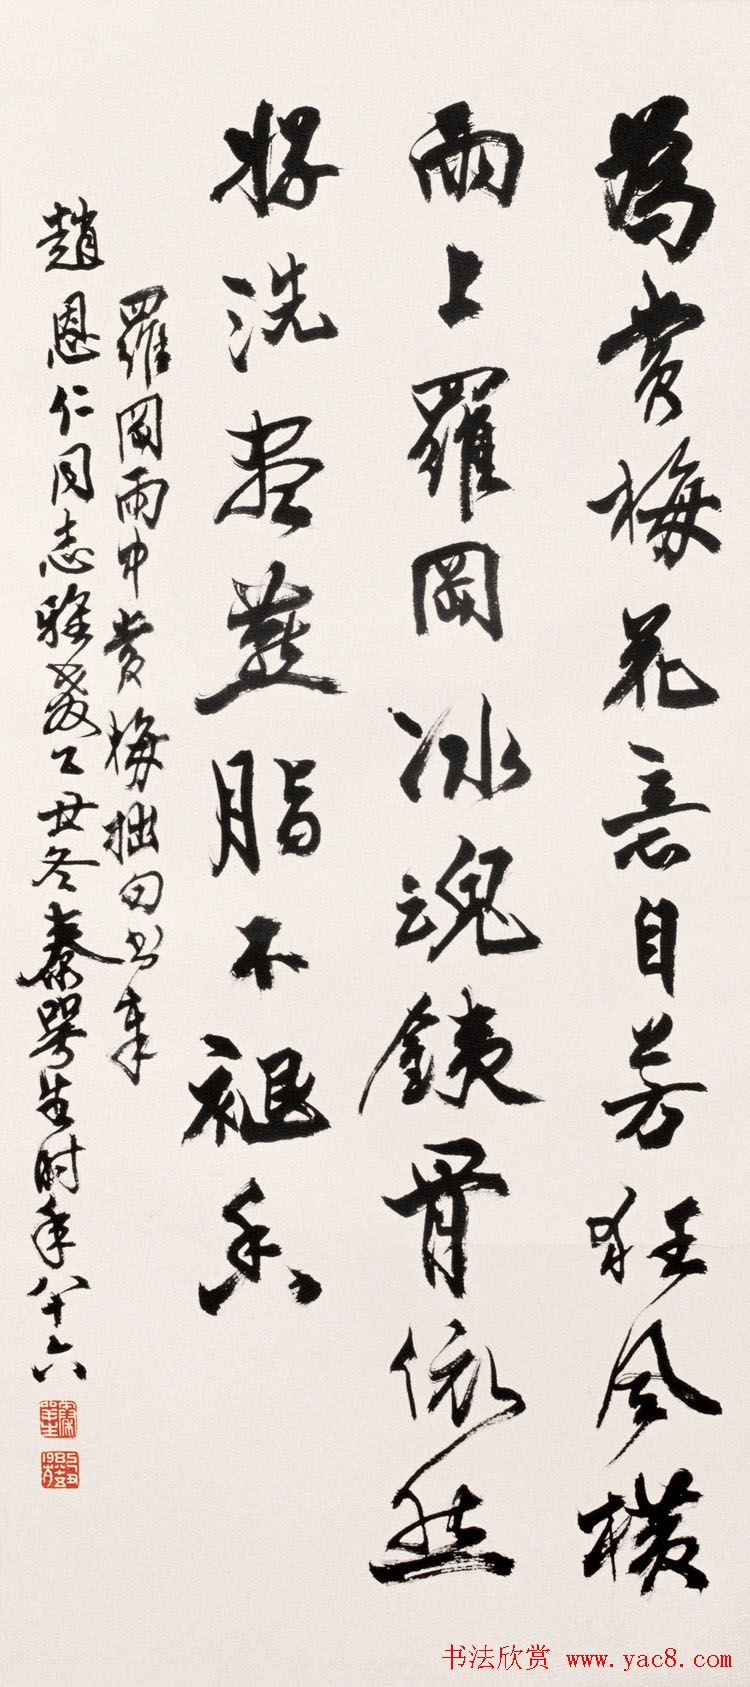 為賞梅花意自芳狂風橫
雨上羅岡冰魂銕骨依然
好洗盡燕脂不褪香
羅岡雨中賞梅拙句書奉
趙恩仁同志雅教乙丑冬秦咢生时年八十六
书法欣赏 www.yac8.com